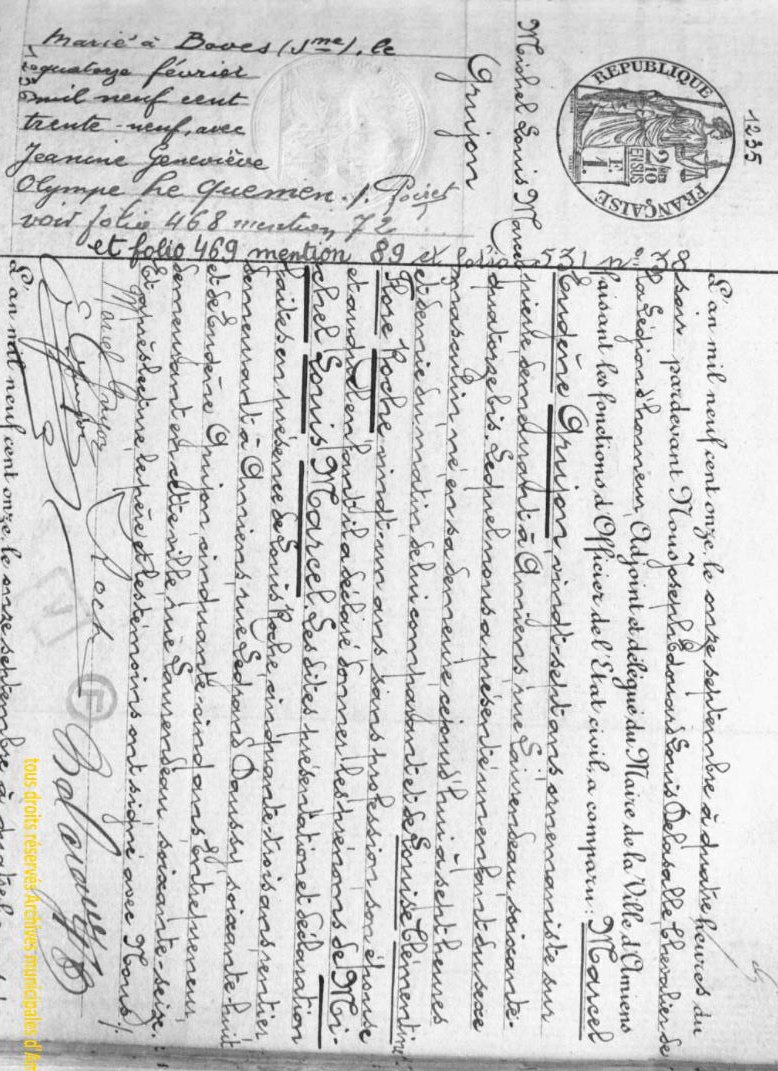 1235
RÉPUBLIQUE
FRANÇAISE
2/10 EN SUS
1 F.
Michel Louis Marcel
Grujon
Marié à Boves (Sme), le
quatorze février
mil neuf cent
trente-neuf, avec
Jeanine Geneviève
Olympe Le Quemen./.
voir folio 468 mention 72
et folio 469 mention 89 et folio 531 n° 38
L'an mil neuf cent onze, le onze septembre à quatre heures du
soir pardevant Nous Joseph Edouard Louis Delasalle Chevalier de
la Légion d'honneur, Adjoint et délégué du Maire de la Ville d'Amiens
faisant les fonctions d'Officier de l'Etat civil, a comparu: Marcel
Eugène Grujon, vingt-sept ans, ornemaniste sur
pierre demeurant à Amiens, rue Laurendeau soixante-
quatorze bis. Lequel nous a présenté un enfant du sexe
masculin né en sa demeure aujourd'hui à sept heures
et demie du matin de lui comparant et de Louise Clémentine
Flore Roche, vingt-un ans, sans profession, son épouse
et auquel enfant il a déclaré donner les prénoms de Mi-
chel Louis Marcel. Lesdites présentation et déclaration
faites en présence de Louis Roche, cinquante-trois ans, rentier
demeurant à Amiens, rue Gédéon Daussy soixante-huit
et de Eugène Grujon, cinquante-cinq ans, entrepreneur
demeurant en cette ville, rue Laurendeau, soixante-seize.
Et après lecture, le père et les témoins ont signé avec Nous./.
Marcel Grujon
E Grujon
Roche
L'an mil neuf cent onze, le onze septembre à quatre
tous droits réservés Archives municipales d'Am